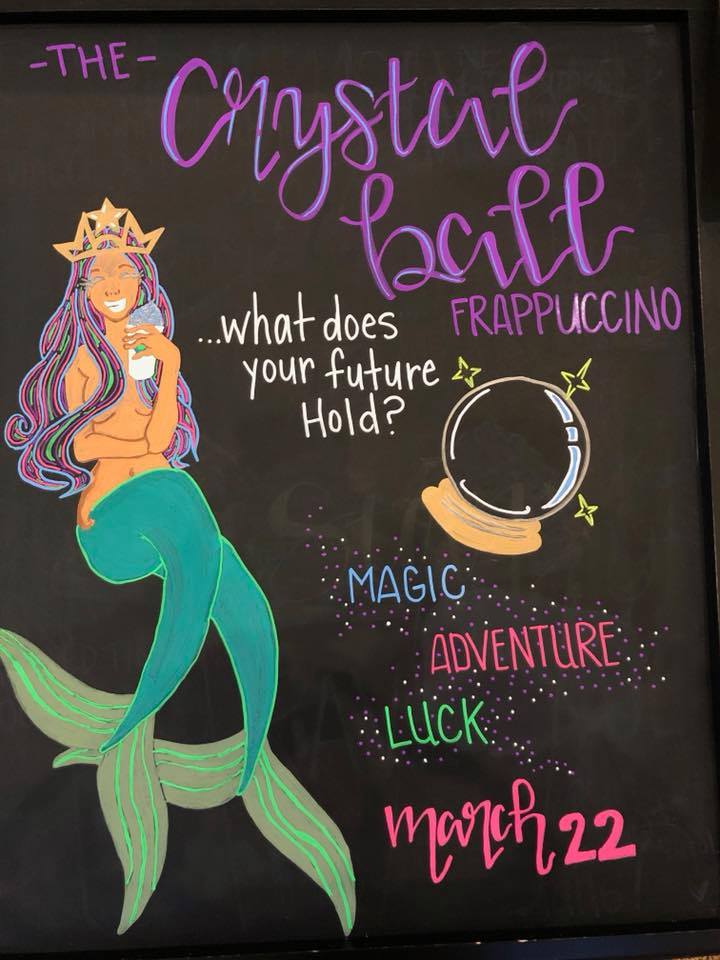 -THE-
Crystal
ball
FRAPPUCCINO
...what does
your future
Hold?
MAGIC
ADVENTURE
LUCK
march 22